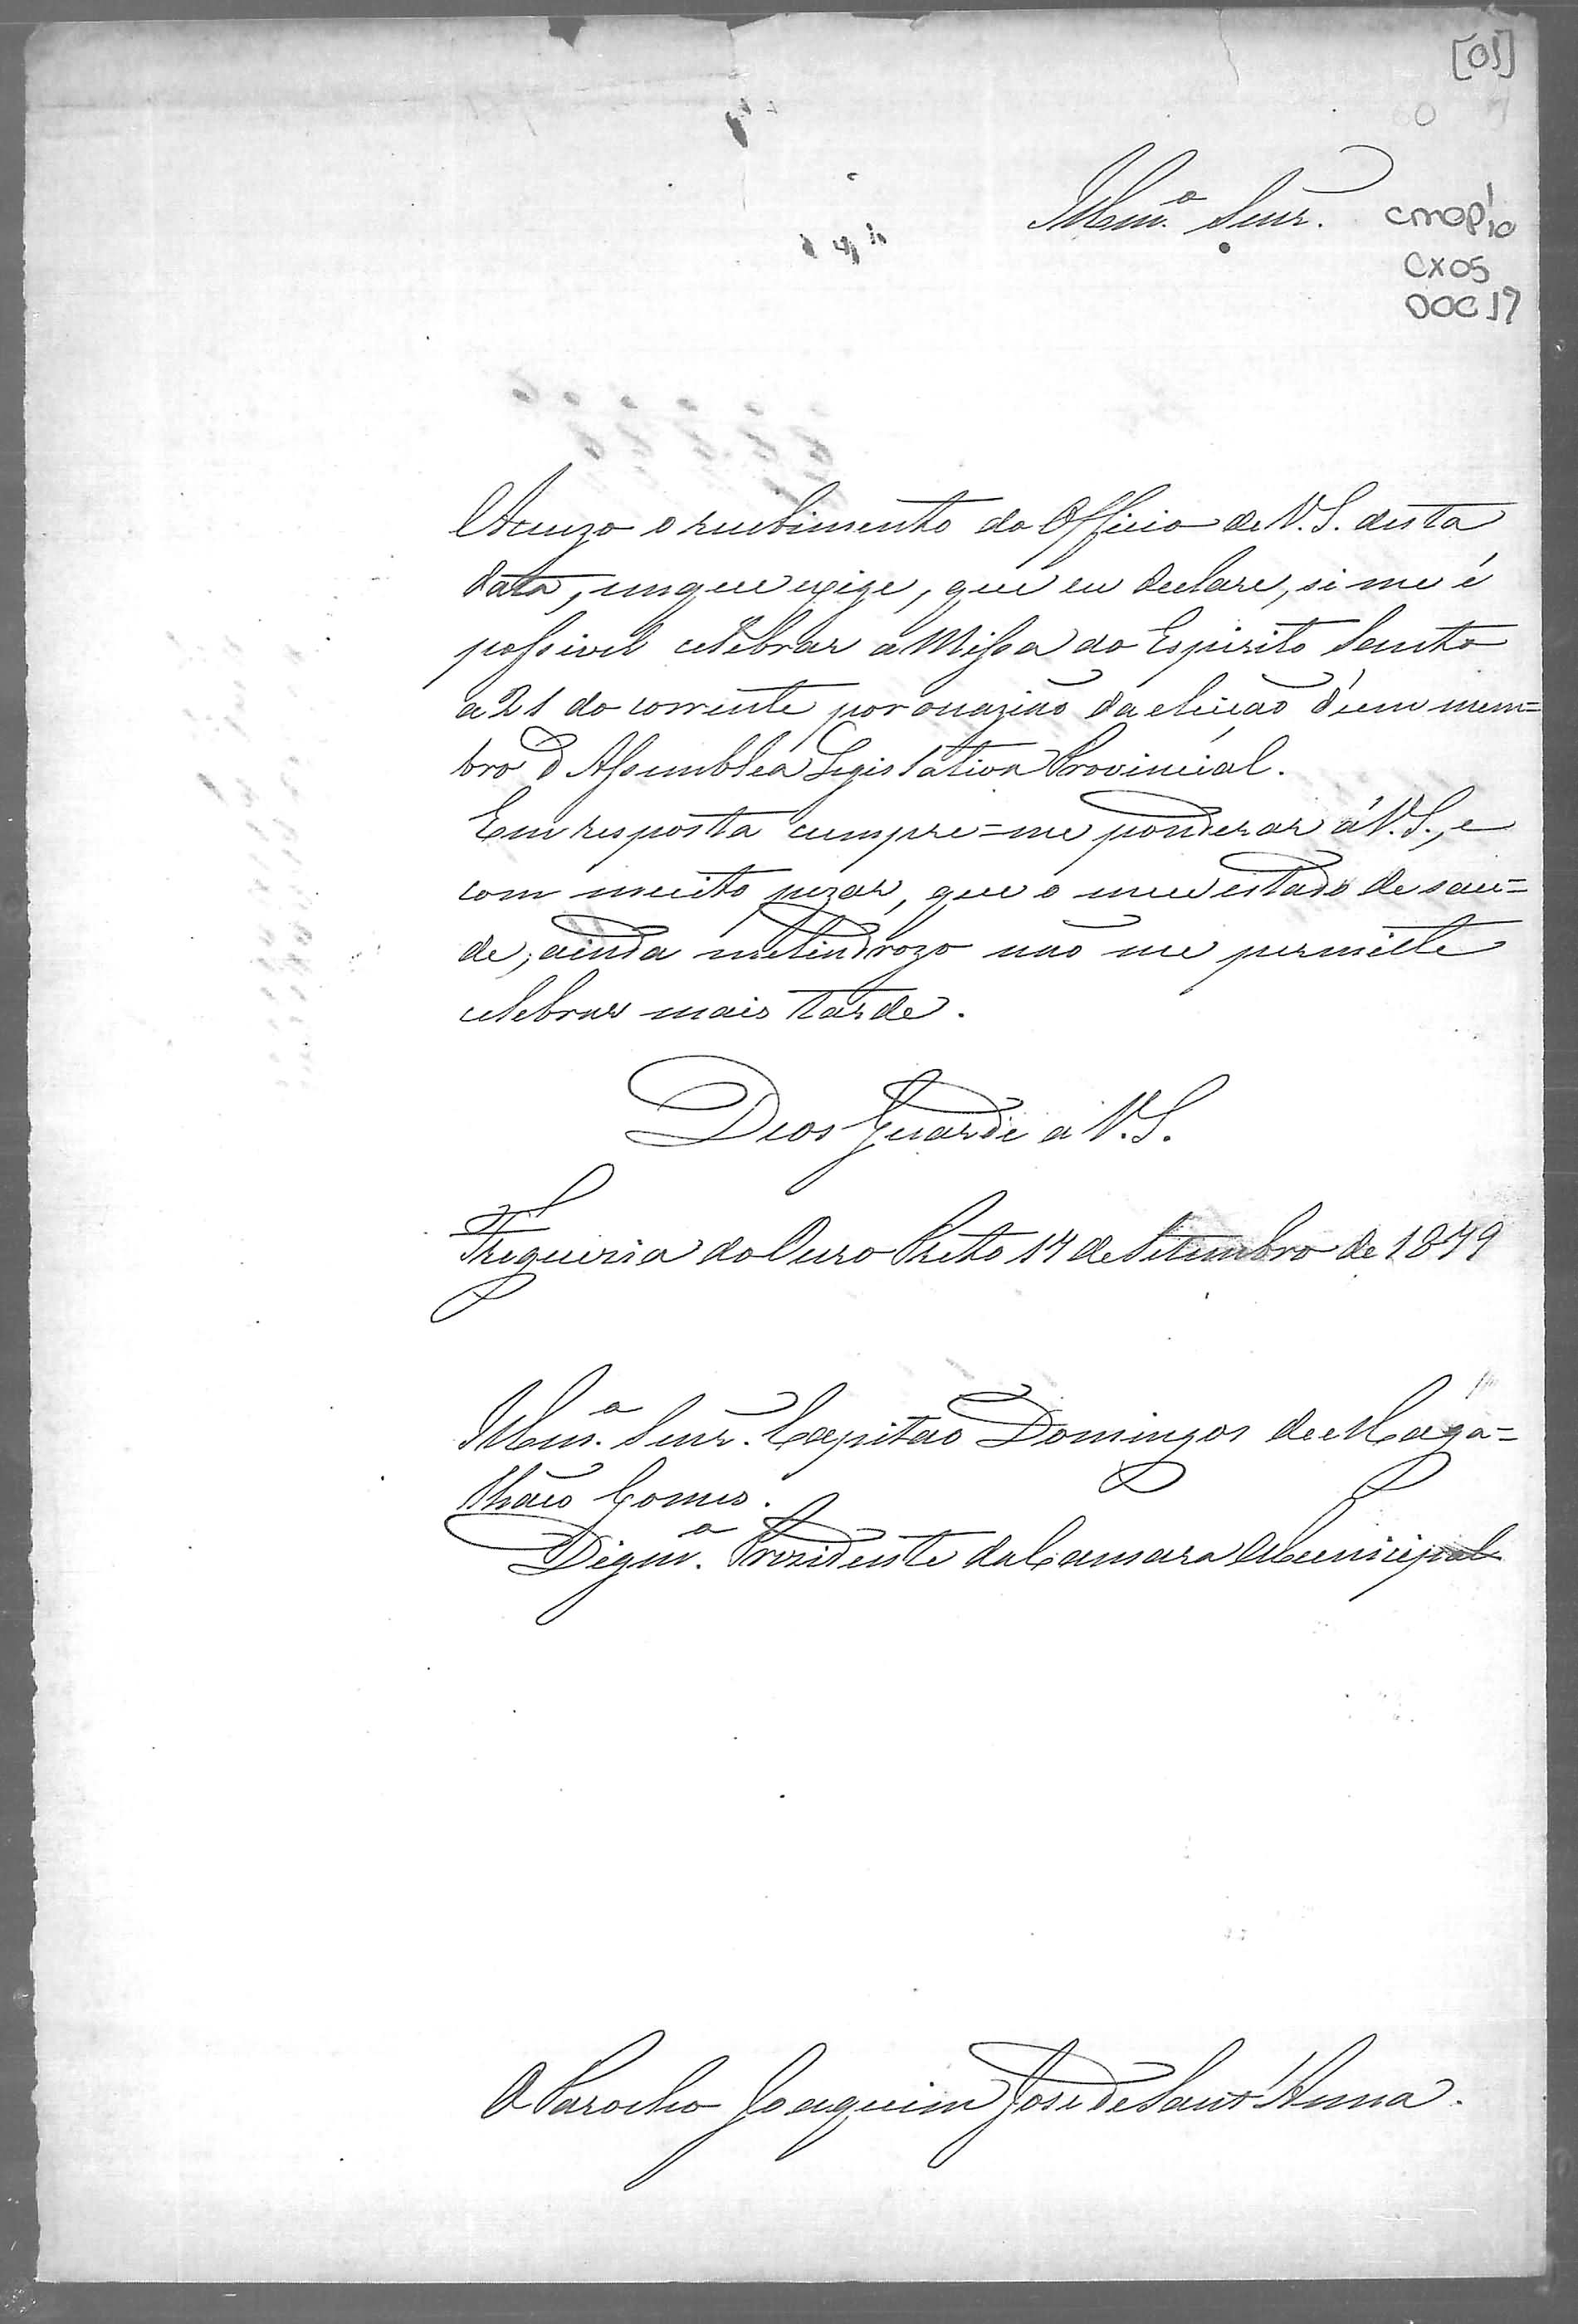 [01]
Illm.o Senr.
CMOP 1/10
CX 05
DOC 17
Accuzo o recebimento do Officio de V. S. desta
data, em que exige, que eu declare, si me é
possivel celebrar a Missa do Espirito Santo
a 21 do corrente por occazião da eleição d'um mem=
bro d'Assembléa Legislativa Provincial.
Em resposta cumpre=me ponderar á V. S., e
com muito pezar, que o meu estado de sau=
de, ainda melindrozo não me permitte
celebrar mais tarde.
Deos Guarde a V. S.
Freguezia do Ouro Preto 14 de Setembro de 1879
Illm.o Senr. Capitão Domingos de Maga=
lhães Gomes.
Dignm.o Prezidente da Camara Municipal
O Parocho Joaquim José de Sant'Anna.